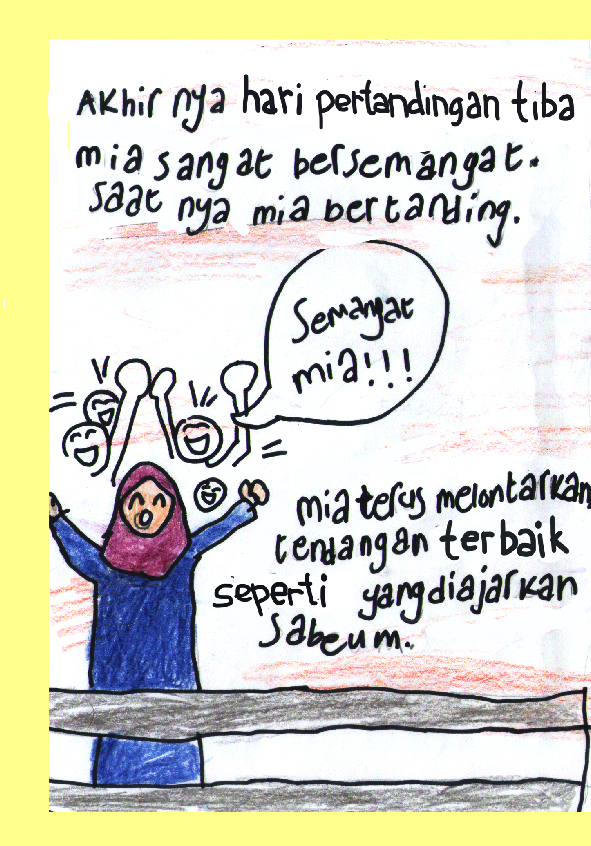 Akhir nya hari pertandingan tiba
mia sangat bersemangat.
saat nya mia bertanding.
Semangat
mia!!!
mia terus melontarkan
tendangan terbaik
seperti yang diajarkan
Sabeum.